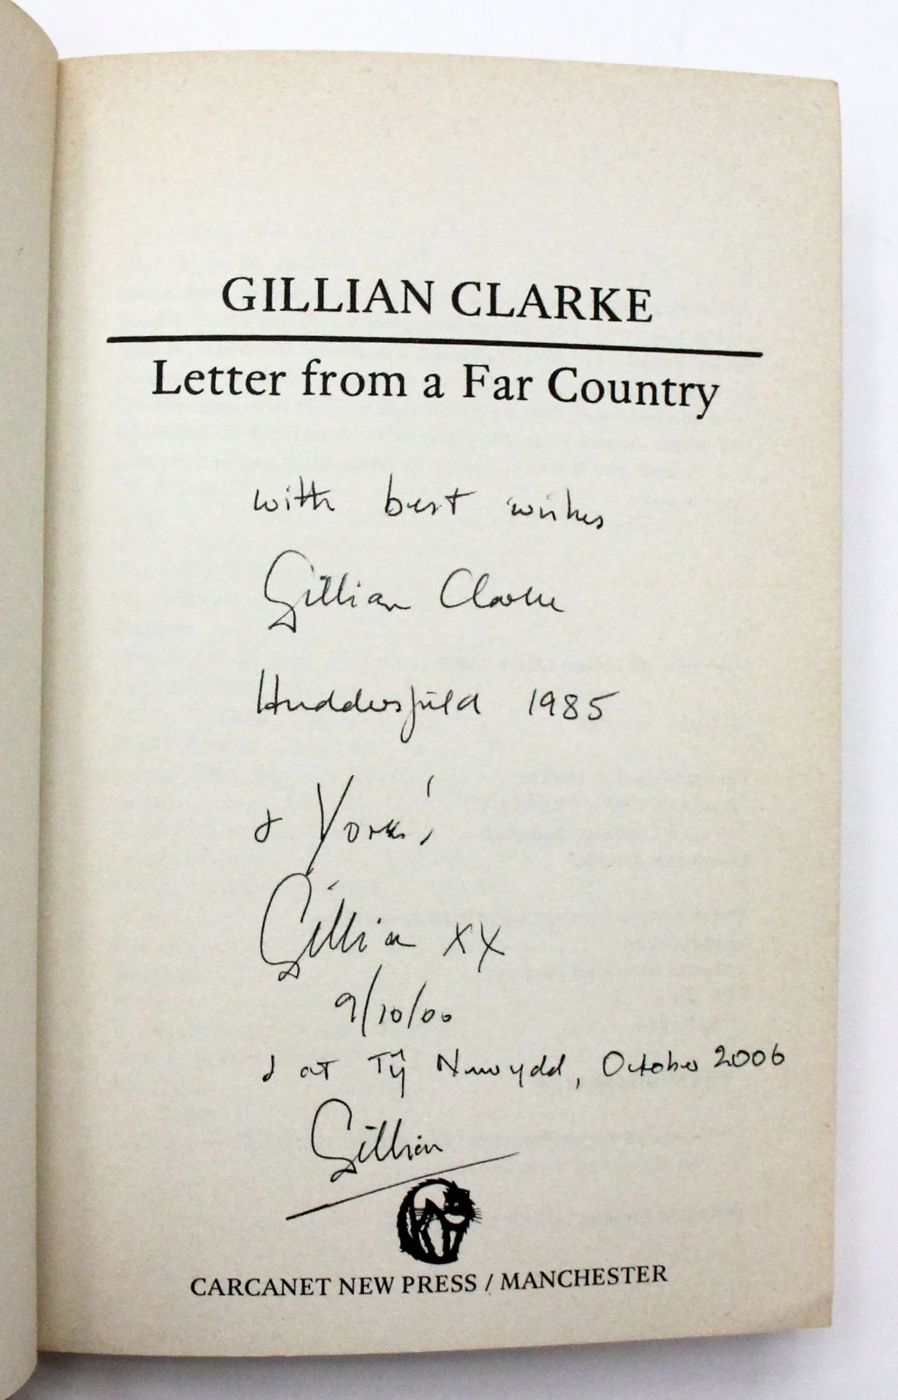 GILLIAN CLARKE
Letter from a Far Country
with best wishes
Gillian Clarke
Huddersfield 1985
& York!
Gillian XX
9/10/00
& at Tŷ Newydd, October 2006
Gillian
CARCANET NEW PRESS / MANCHESTER